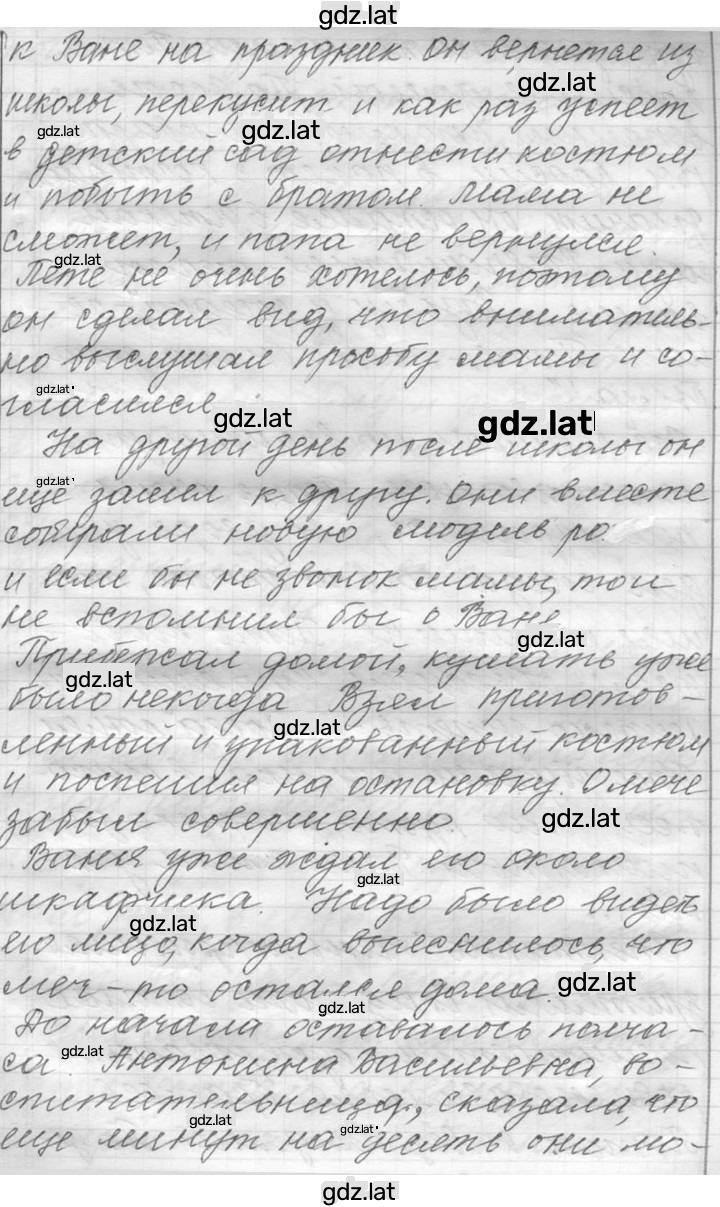 gdz.lat
к Ване на праздник. он вернется из
gdz.lat
школы, перекусит и как раз успеет
gdz.lat gdz.lat
в детский сад отнести костюм
и побыть с братом. Мама не
сможет, и папа не вернулся.
gdz.lat
Пете не очень хотелось, поэтому
он сделал вид, что вниматель-
но выслушал просьбу мамы и со-
gdz.lat
гласился.
gdz.lat gdz.lat
На другой день после школы он
gdz.lat
еще зашел к другу. Они вместе
собирали новую модель ро
и если бы не звонок мамы, то и
не вспомнил бы о Ване
gdz.lat
Прибежал домой, кушать уже
gdz.lat
было некогда Взял приготов-
gdz.lat
ленный и упакованный костюм
и поспешил на остановку. О мече
забыл совершенно.
gdz.lat
Ваня уже ждал его около
gdz.lat
шкафчика. Надо было видеть
gdz.lat
его лицо, когда выяснилось, что
меч-то остался дома.
gdz.lat
gdz.lat
До начала оставалось полча-
gdz.lat
са. Антонина Васильевна, во-
спитательница, сказала, что
gdz.lat gdz.lat
еще минут на десять они мо-
gdz.lat